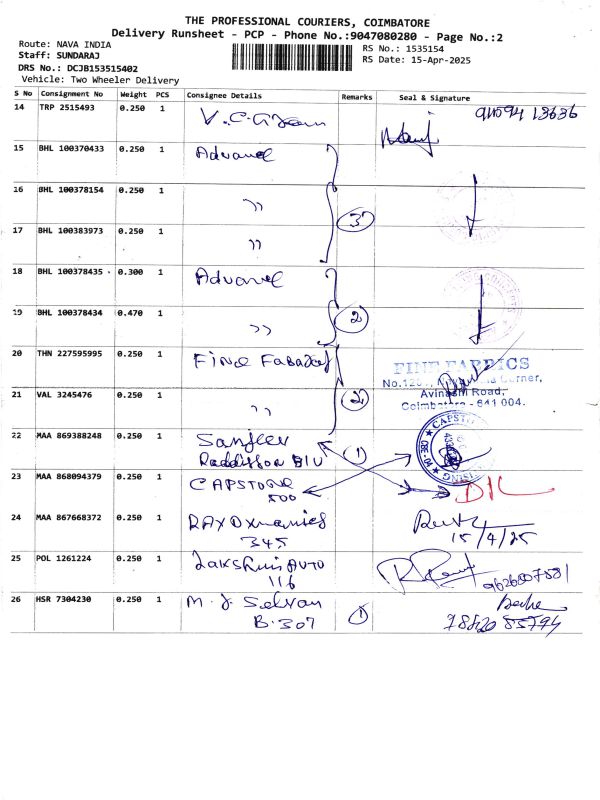 THE PROFESSIONAL COURIERS, COIMBATORE
Delivery Runsheet - PCP - Phone No.:9047080280 - Page No.:2
Route: NAVA INDIA
RS No.: 1535154
Staff: SUNDARAJ
RS Date: 15-Apr-2025
DRS No.: DCJB153515402
Vehicle: Two Wheeler Delivery
S No Consignment No Weight PCS Consignee Details Remarks Seal & Signature
14 TRP 2515493 0.250 1 V.C.
15 BHL 100370433 0.250 1 Advance
16 BHL 100378154 0.250 1 ,, 3
17 BHL 100383973 0.250 1 ,,
18 BHL 100378435 0.300 1 Advance
19 BHL 100378434 0.470 1 ,, 2
20 THN 227595995 0.250 1 Fine
FINE FABRICS
Corner,
21 VAL 3245476 0.250 1 ,, 2
Avinashi Road,
Coimbatore - 641 004.
22 MAA 869388248 0.250 1 Sanjeev 1
23 MAA 868094379 0.250 1 CAPSTONE
500
24 MAA 867668372 0.250 1 RAX Dynamics
345
15/4/25
25 POL 1261224 0.250 1 Lakshmi AUTO
116
26 HSR 7304230 0.250 1 M.J. Selvan 1
B.307